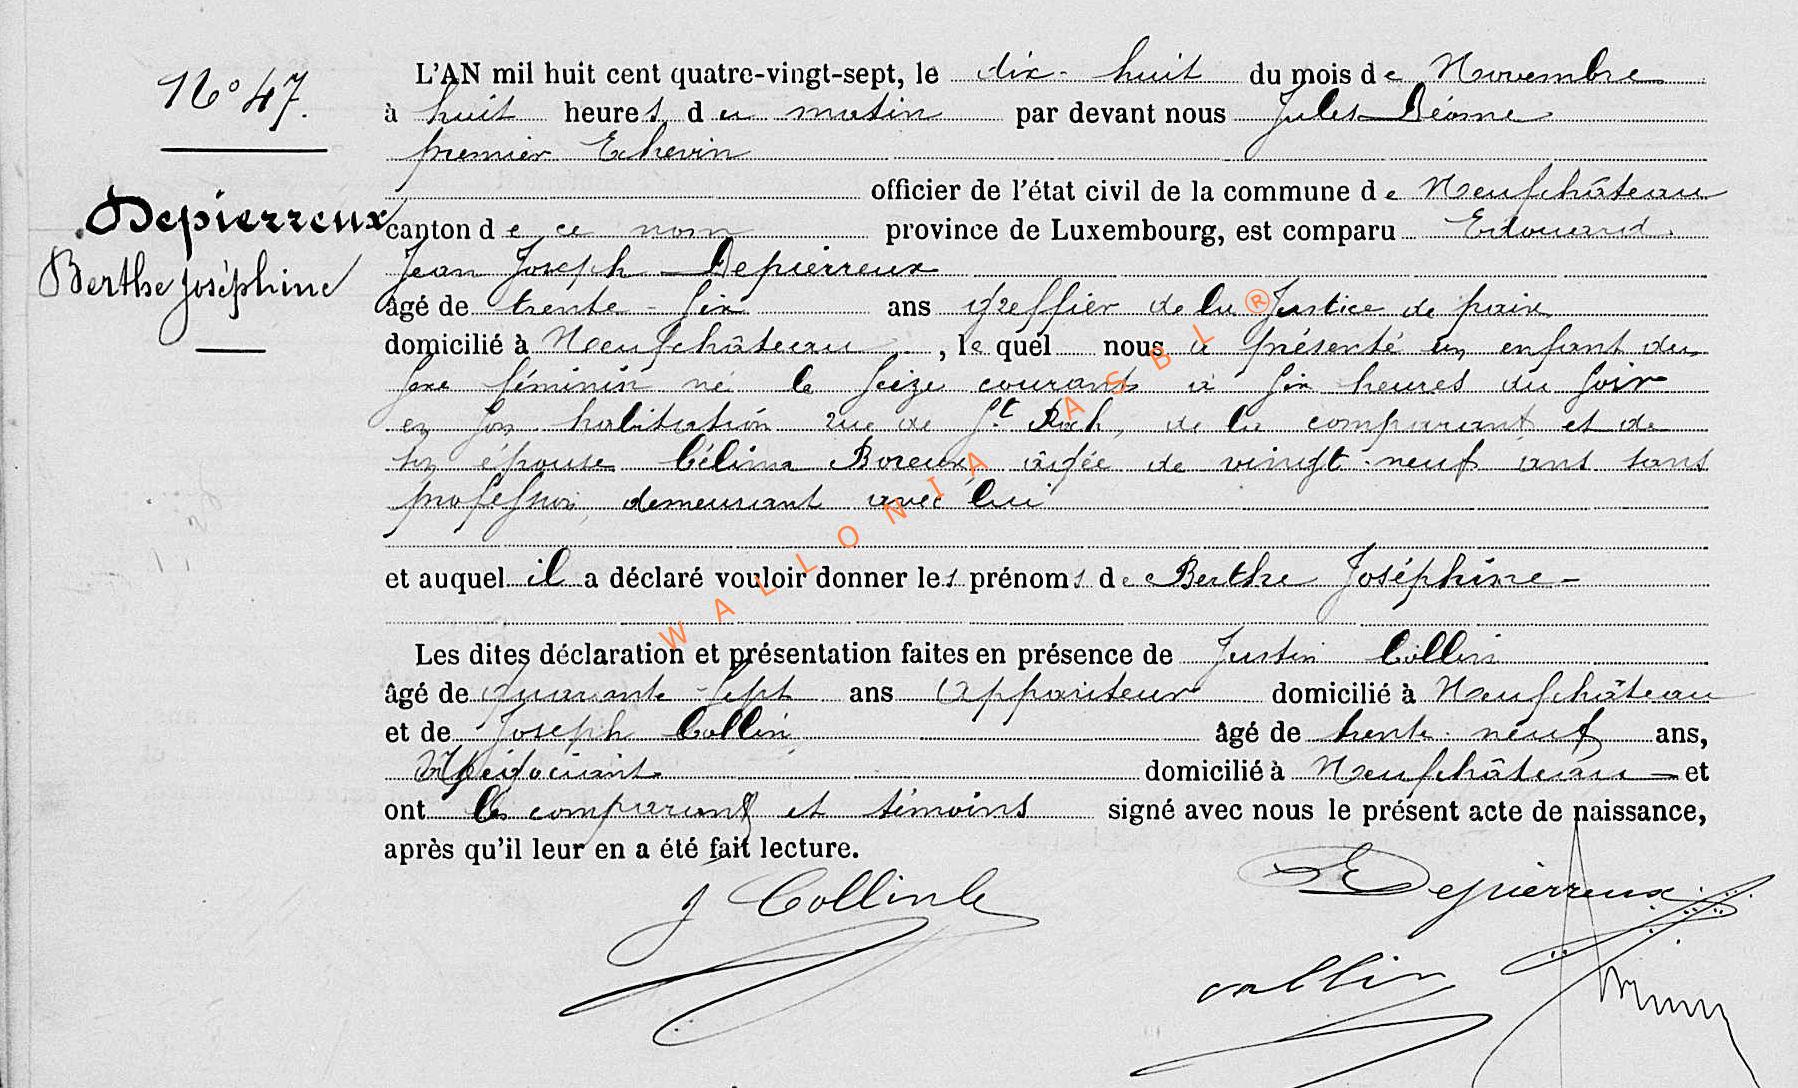 N° 47.
Depierreux
Berthe Joséphine
L'AN mil huit cent quatre-vingt-sept, le dix-huit du mois de Novembre
à huit heures du matin par devant nous Jules
premier Echevin
officier de l'état civil de la commune de Neufchâteau
canton de ce nom province de Luxembourg, est comparu Edouard
Jean Joseph Depierreux
âgé de trente-six ans Greffier de la Justice de paix
domicilié à Neufchâteau, lequel nous a présenté un enfant du
sexe féminin né le seize courant à six heures du soir
en son habitation rue de St Roch, de lui comparant et de
son épouse Célina Boreux âgée de vingt-neuf ans sans
profession, demeurant avec lui
et auquel il a déclaré vouloir donner les prénoms de Berthe Joséphine -
Les dites déclaration et présentation faites en présence de Justin Collin
âgé de quarante-sept ans Appariteur domicilié à Neufchâteau
et de Joseph Collin, âgé de trente-neuf ans,
Négociant domicilié à Neufchâteau et
ont les comparant et témoins signé avec nous le présent acte de naissance,
après qu'il leur en a été fait lecture.
J Collin
EDepierreux
Collin
WALLONIA ASBL ®